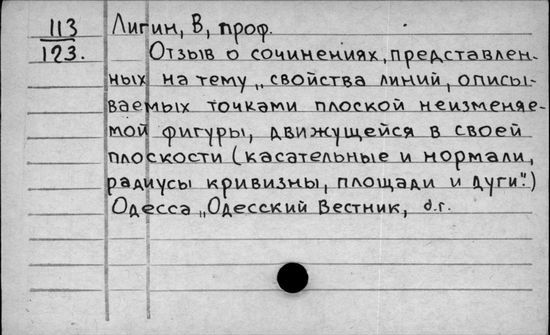 113 Лигин, В, проф.
123. Отзыв о сочинениях, представлен-
ных на тему „свойства линий, описы-
ваемых точками плоской неизменяе-
мой фигуры, движущейся в своей
плоскости (касательные и нормали,
радиусы кривизны, площади и дуги".)
Одесса „Одесский Вестник, б.г.